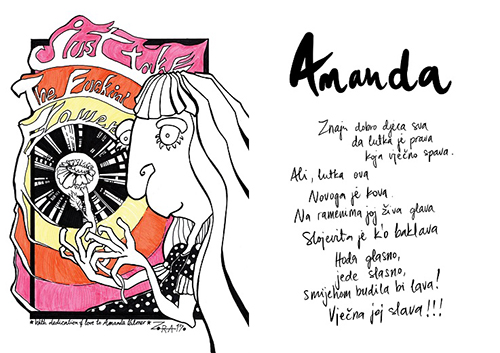 Just take
The Fuckin'
Flower
*With dedication & love to Amanda Palmer*
ZORA 19*
Amanda
Znaju dobro djeca sva
da lutka je prava
koja vječno spava.
Ali, lutka ova
Novoga je kova.
Na ramenima joj živa glava
Slojevita je k'o baklava
Hoda glasno,
jede slasno,
smijehom budila bi lava!
Vječna joj slava!!!